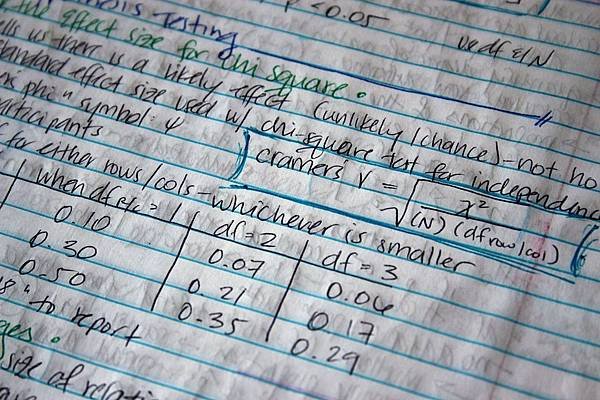 p < 0.05
Testing
use df & N
effect size for chi square.
us there is a likely effect (unlikely/chance) - not
effect size used w/ chi-square test for independence
symbol:
cramers V = √ χ² / (N)(df row/col)
for either rows/cols - whichever is smaller
when df = 1 df = 2 df = 3
0.10 0.07 0.06
0.30 0.21 0.17
0.50 0.35 0.29
to report
size of